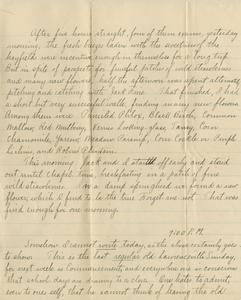 After five hours straight, four of them sponges, yesterday
morning, the fresh breeze laden with the sweetness of the
hayfields were incentive enough in themselves for a long trip.
But in spite of perfectly fine fruited patches of wild strawberries
and many new flowers, half the afternoon was spent alternately
pitching and catching with Jack Hume. That finished, I had
a short but very successful walk, finding many new flowers.
Among them were Panicled Phlox, Black Birch, Common
Mallow, Red Mulberry, Venus's Looking-glass, Tansy, Corn
Chamomile, Yarrow, Meadow Parsnip, Corn Cockle or Purple
Lichnis, and Robins Plantain.
This morning Jack and I started off early and stood
out until chapel time, breakfasting in a patch of fine
wild strawberries. Near a damp springhead we found a new
flower, which I find to be the true Forget-me-not. That was
find enough for one morning.
9:00 P.M.
Somehow I cannot write today, as the above certainly goes
to show. This is the last regular old Lawrenceville Sunday,
for next week is Commencement, and everyone is conscious
that school days are drawing to a close. One hates to admit,
even to one's self, that he cannot think of leaving the old